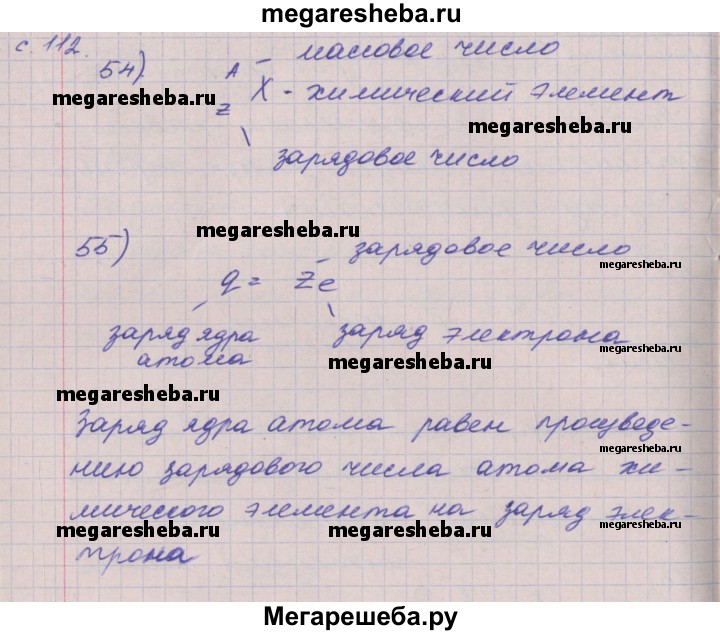 megaresheba.ru
с. 112.
54)
A – массовое число
megaresheba.ru
X - химический элемент
Z
megaresheba.ru
зарядовое число
megaresheba.ru
55)
зарядовое число
megaresheba.ru
q = Ze
заряд ядра атома
заряд электрона
megaresheba.ru
megaresheba.ru
megaresheba.ru
Заряд ядра атома равен произведе-
megaresheba.ru
нию зарядового числа атома хи-
мического элемента на заряд элек-
megaresheba.ru
megaresheba.ru
megaresheba.ru
трона
Мегарешеба.ру